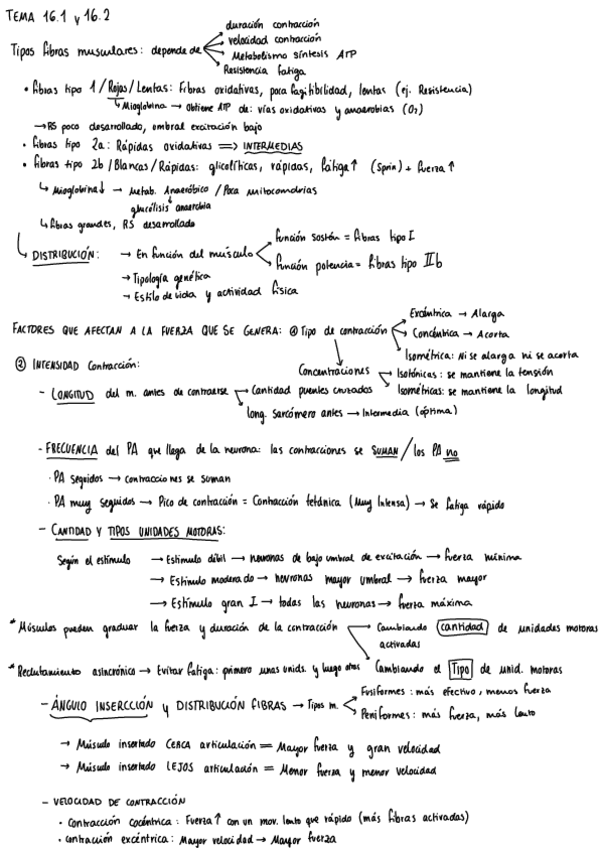 TEMA 16.1 y 16.2
Tipos fibras musculares: depende de
duración contracción
velocidad contracción
Metabolismo síntesis ATP
Resistencia fatiga
• fibras tipo 1 / Rojas / Lentas: Fibras oxidativas, poca fagitibilidad, lentas (ej. Resistencia)
↳ Mioglobina → Obtiene ATP de: vías oxidativas y anaerobias (O₂)
→ RS poco desarrollado, umbral excitación bajo
• fibras tipo 2a: Rápidas oxidativas ⇒ INTERMEDIAS
• fibras tipo 2b / Blancas / Rápidas: glicolíticas, rápidas, fatiga ↑ (Sprin) + fuerza ↑
↳ Mioglobina ↓ → Metab. Anaeróbico / Poca mitocondrias
glucólisis anaerobia
↳ fibras grandes, RS desarrollado
↳ DISTRIBUCIÓN:
→ En función del músculo
función sostén = fibras tipo I
función potencia = fibras tipo IIb
→ Tipología genética
→ Estilo de vida y actividad física
FACTORES QUE AFECTAN A LA FUERZA QUE SE GENERA: ① Tipo de contracción
Excéntrica → Alarga
Concéntrica → Acorta
Isométrica: Ni se alarga ni se acorta
Concentraciones
Isotónicas: se mantiene la tensión
Isométricas: se mantiene la longitud
② INTENSIDAD Contracción:
- LONGITUD del m. antes de contraerse
Cantidad puentes cruzados
long. Sarcómero antes → Intermedia (óptima)
- FRECUENCIA del PA que llega de la neurona: las contracciones se SUMAN / los PA no
· PA seguidos → contracciones se suman
· PA muy seguidos → Pico de contracción = Contracción tetánica (Muy Intensa) → Se fatiga rápido
- CANTIDAD Y TIPOS UNIDADES MOTORAS:
Según el estímulo
→ Estímulo débil → neuronas de bajo umbral de excitación → fuerza mínima
→ Estímulo moderado → neuronas mayor umbral → fuerza mayor
→ Estímulo gran I → todas las neuronas → fuerza máxima
* Músculos pueden graduar la fuerza y duración de la contracción
Cambiando cantidad de unidades motoras activadas
Cambiando el Tipo de unid. motoras
* Reclutamiento asincrónico → Evitar fatiga: primero unas unids. y luego otras
- ÁNGULO INSERCCIÓN y DISTRIBUCIÓN FIBRAS → Tipos m.
Fusiformes: más efectivo, menos fuerza
Peniformes: más fuerza, más lento
→ Músculo insertado CERCA articulación = Mayor fuerza y gran velocidad
→ Músculo insertado LEJOS articulación = Menor fuerza y menor velocidad
- VELOCIDAD DE CONTRACCIÓN
• Contracción cocéntrica: Fuerza ↑ con un mov. lento que rápido (más fibras activadas)
• contracción excéntrica: Mayor velocidad → Mayor fuerza